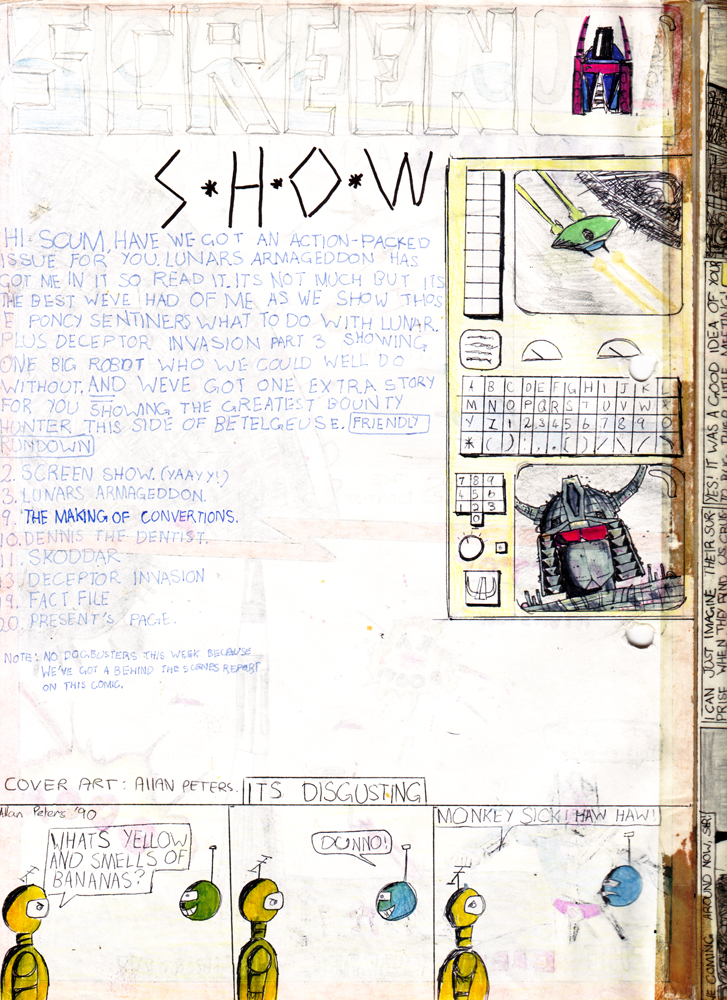 SCREEN
S*H*O*W
HI SCUM, HAVE WE GOT AN ACTION-PACKED
ISSUE FOR YOU. LUNARS ARMAGEDDON HAS
GOT ME IN IT SO READ IT. ITS NOT MUCH BUT ITS
THE BEST WEVE HAD OF ME AS WE SHOW THOS
E PONCY SENTINERS WHAT TO DO WITH LUNAR.
PLUS DECEPTOR INVASION PART 3 SHOWING
ONE BIG ROBOT WHO WE COULD WELL DO
WITHOUT. AND WEVE GOT ONE EXTRA STORY
FOR YOU SHOWING THE GREATEST BOUNTY
HUNTER THIS SIDE OF BETELGEUSE. FRIENDLY
RUNDOWN
2. SCREEN SHOW. (YAAYY!)
3. LUNARS ARMAGEDDON.
9. THE MAKING OF CONVERTIONS.
10. DENNIS THE DENTIST.
11. SKODDAR
13. DECEPTOR INVASION
19. FACT FILE
20. PRESENT'S PAGE.
NOTE: NO DOGBUSTERS THIS WEEK BECAUSE
WE'VE GOT A BEHIND THE SCENES REPORT
ON THIS COMIC.
B C D E F G H I J K L
M N O P Q R S T U V W X
Y Z 1 2 3 4 5 6 7 8 9 0
7 8 9
4 5 6
2 3
0
COVER ART: Allan PETERS.
ITS DISGUSTING
Allan Peters '90
WHATS YELLOW
AND SMELLS OF
BANANAS?
DUNNO!
MONKEY SICK! HAW HAW!
I CAN JUST IMAGINE THEIR SUR
PRISE WHEN THEY FIND
YES! IT WAS A GOOD IDEA OF YOUR
COMING AROUND NOW, SIR!